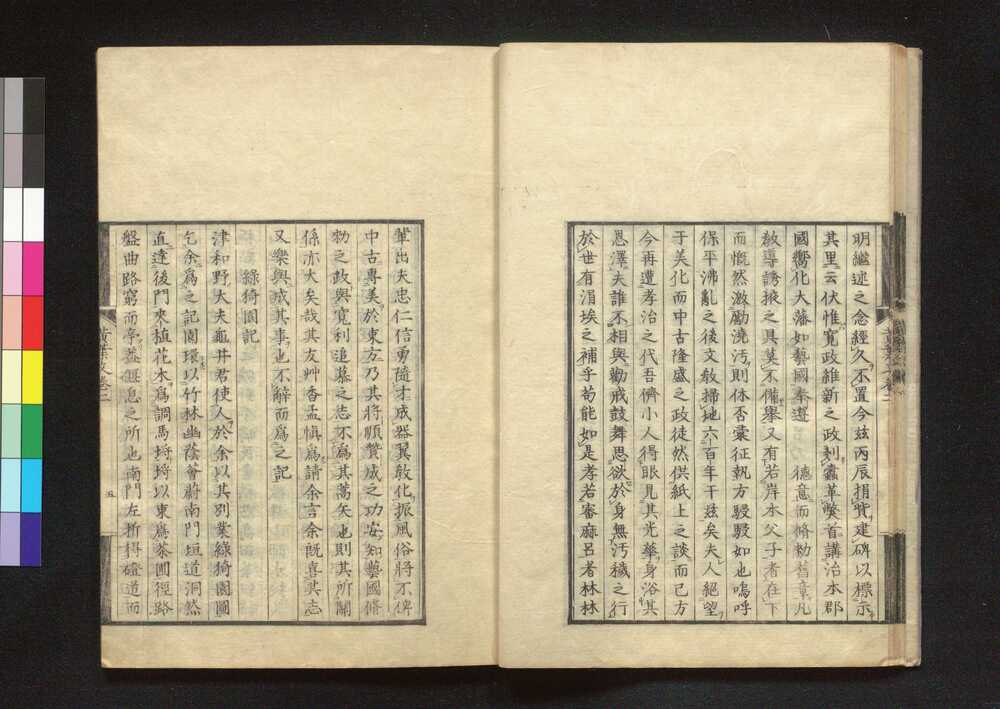 明繼述之念經久不置今玆丙辰捐貲建碑以標示
其里云伏惟寬政維新之政刬蠧革獘首講治本郡
國嚮化大藩如藝國奉遵德意而脩勑舊章凡
敎導誘掖之具莫不備擧又有若岸本父子者在下
而慨然激勵澆汚則休否彙征執方駸駸如也嗚呼
保平沸亂之後文敎掃地六百年于玆矣夫人絕望
于美化而中古隆盛之政徒然供紙上之談而已方
今再遭孝治之代吾儕小人得眼見其光華身浴其
恩澤夫誰不相與勸戒鼓舞思欲於身無汚穢之行
於世有涓埃之補乎苟能如是孝若審麻呂者林林
輩出夫忠仁信勇隨才成器翼敎化振風俗將不俾
中古專美於東方乃其將順贊成之功安知藝國脩
勑之政與寬利追慕之志不爲其蒿矢也則其所關
係亦大矣哉其友艸香孟愼爲請余言余旣喜其志
又樂與成其事也不辭而爲之記
綠猗園記
津和野大夫龜井君使人於余以其別業綠猗園圖
乞余爲之記園環以竹林幽蔭薈蔚南門垣道洞然
直達後門夾植花木爲調馬埓埓以東爲茶圃徑路
盤曲路窮而亭蓋偃息之所也南門左折得磴道而
黃葉文卷二
五